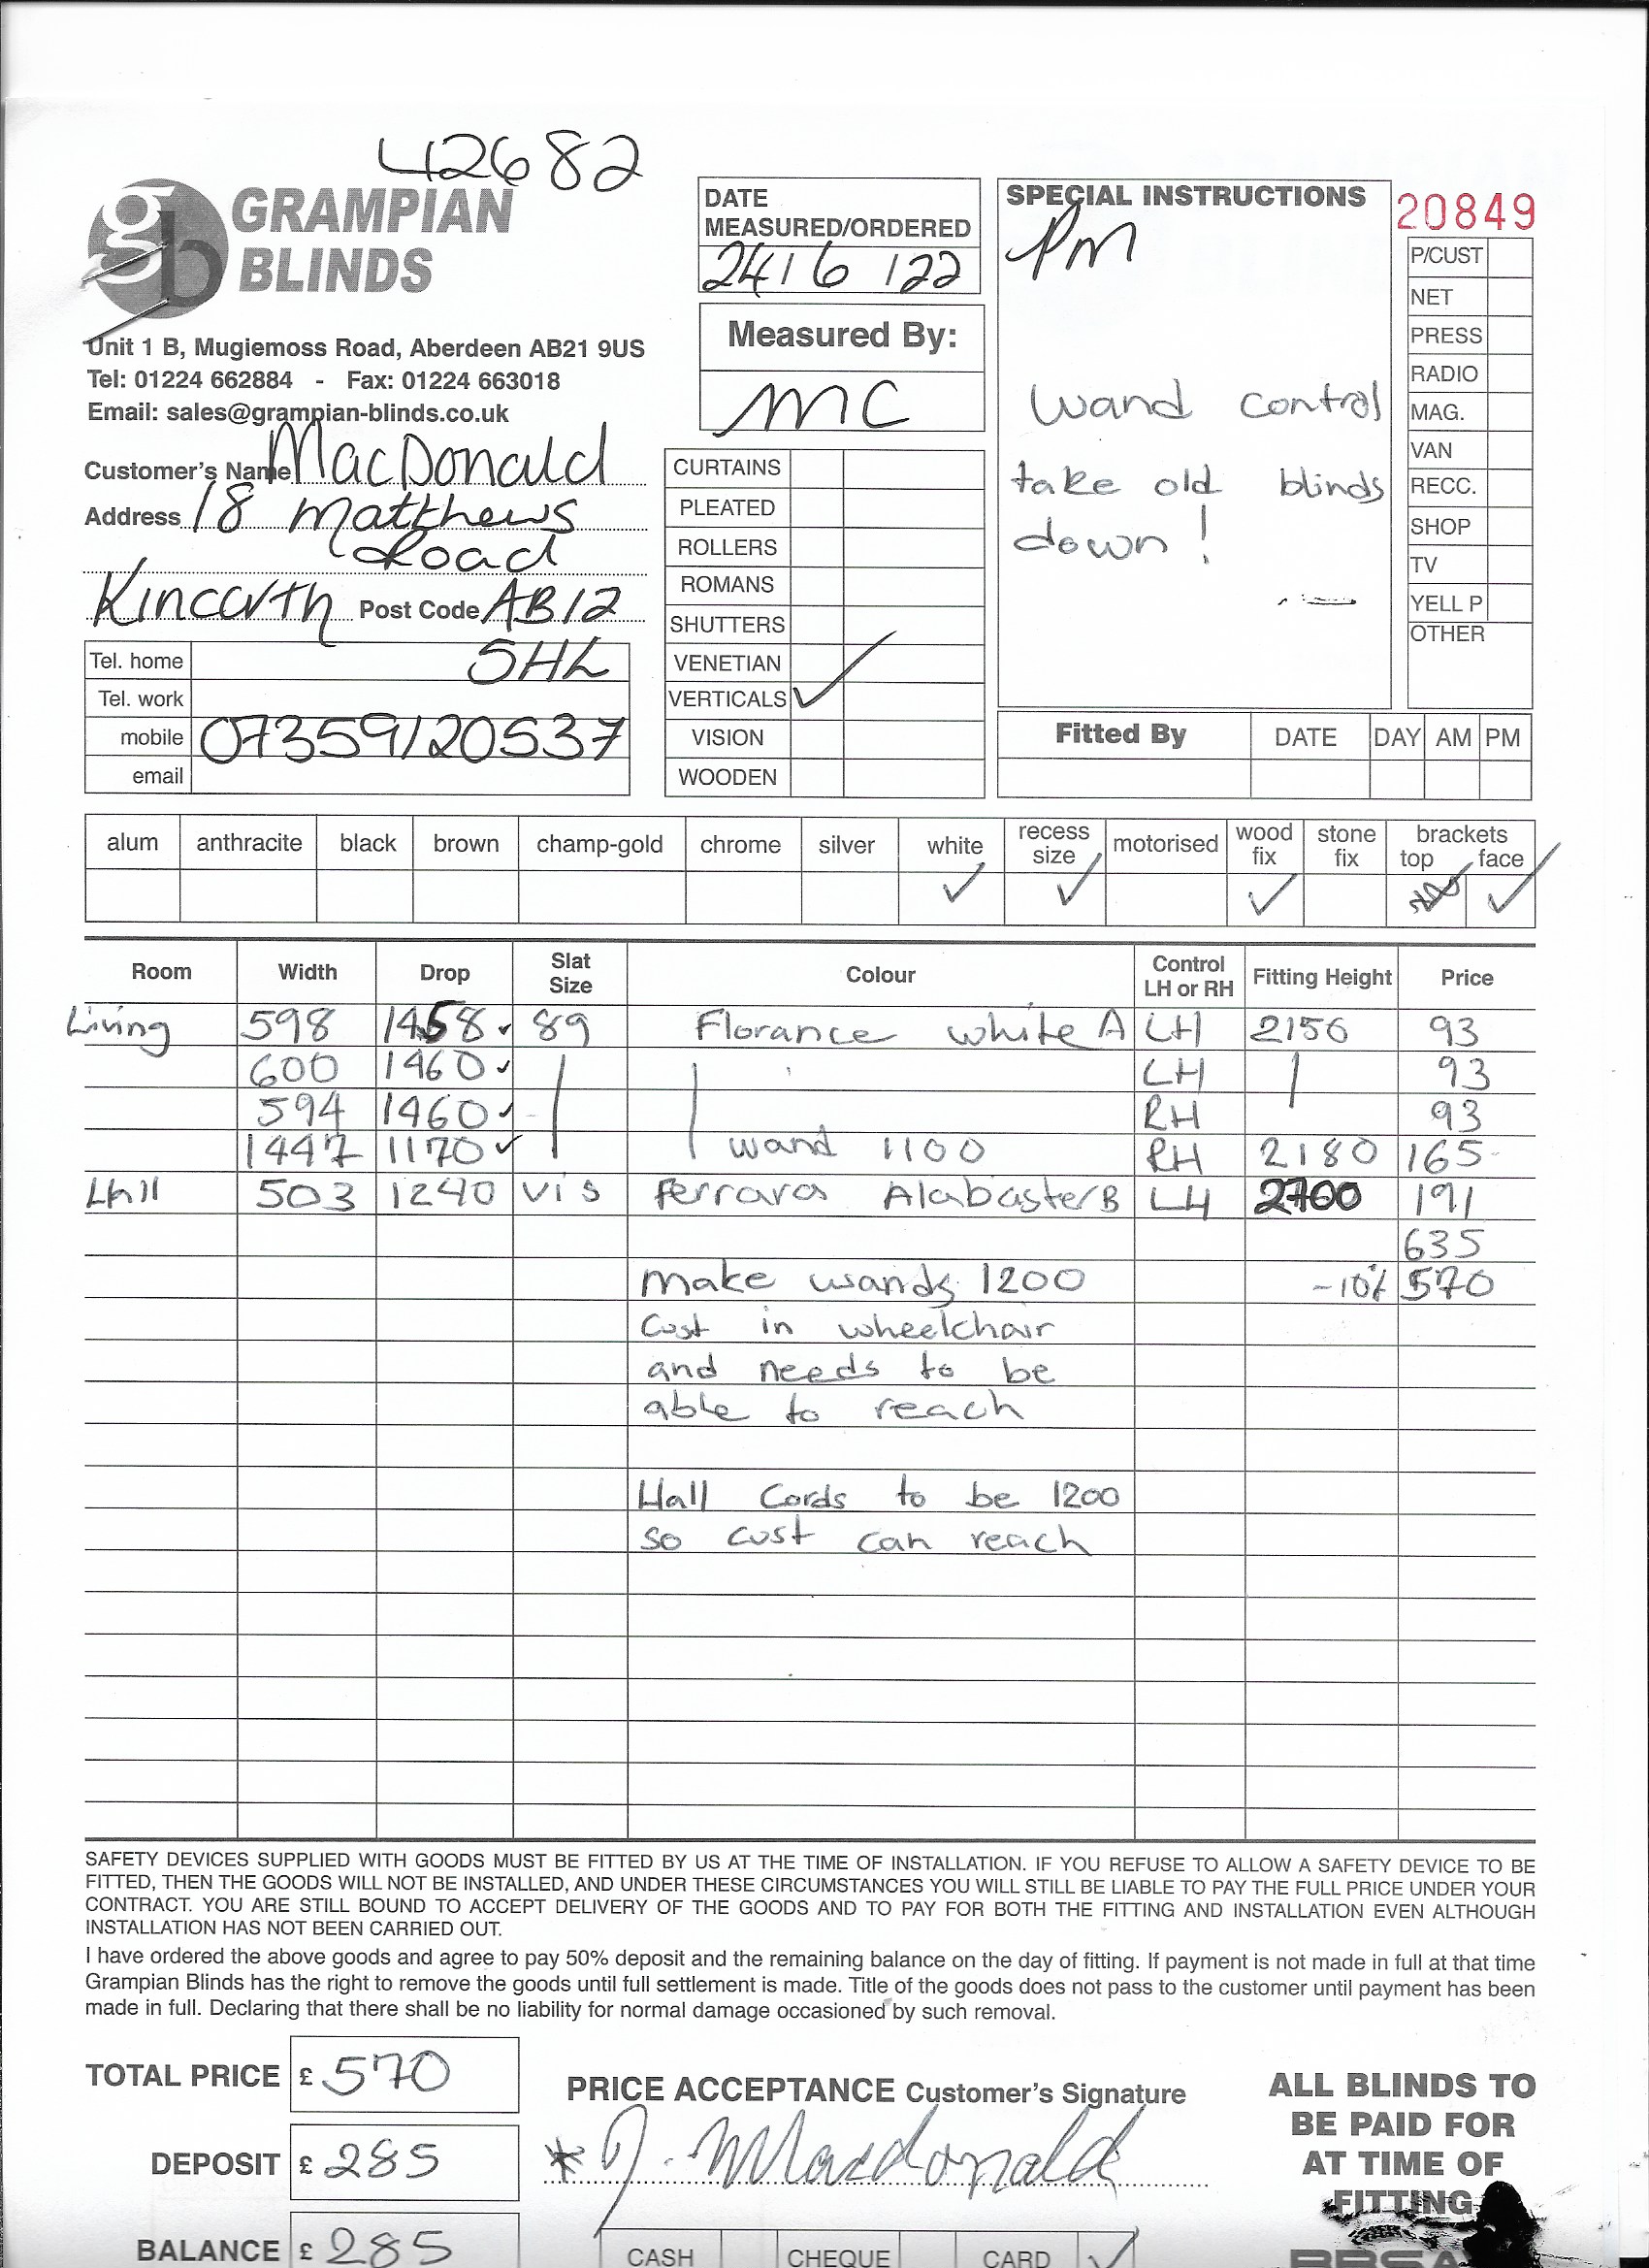 42682
GRAMPIAN
BLINDS
Unit 1 B, Mugiemoss Road, Aberdeen AB21 9US
Tel: 01224 662884 - Fax: 01224 663018
Email: sales@grampian-blinds.co.uk
Customer's Name MacDonald
Address 18 Matthews
Road
Kincorth Post Code AB12
5HL
Tel. home
Tel. work
mobile 07359120537
email
DATE
MEASURED/ORDERED
24/6/22
Measured By:
MC
CURTAINS
PLEATED
ROLLERS
ROMANS
SHUTTERS
VENETIAN
VERTICALS ✓
VISION
WOODEN
SPECIAL INSTRUCTIONS
PM
Wand control
take old blinds
down!
20849
P/CUST
NET
PRESS
RADIO
MAG.
VAN
RECC.
SHOP
TV
YELL P
OTHER
Fitted By DATE DAY AM PM
alum anthracite black brown champ-gold chrome silver white recess size motorised wood fix stone fix brackets top face
✓ ✓ ✓ ✓
Room Width Drop Slat Size Colour Control LH or RH Fitting Height Price
Living 598 1458 ✓ 89 Florance white A LH 2156 93
600 1460 ✓ LH 93
594 1460 ✓ RH 93
1447 1170 ✓ wand 1100 RH 2180 165
Hall 503 1240 vis Ferrara Alabaster B LH 2700 191
635
Make wands 1200 -10% 570
Cust in wheelchair
and needs to be
able to reach
Hall Cords to be 1200
so cust can reach
SAFETY DEVICES SUPPLIED WITH GOODS MUST BE FITTED BY US AT THE TIME OF INSTALLATION. IF YOU REFUSE TO ALLOW A SAFETY DEVICE TO BE
FITTED, THEN THE GOODS WILL NOT BE INSTALLED, AND UNDER THESE CIRCUMSTANCES YOU WILL STILL BE LIABLE TO PAY THE FULL PRICE UNDER YOUR
CONTRACT. YOU ARE STILL BOUND TO ACCEPT DELIVERY OF THE GOODS AND TO PAY FOR BOTH THE FITTING AND INSTALLATION EVEN ALTHOUGH
INSTALLATION HAS NOT BEEN CARRIED OUT.
I have ordered the above goods and agree to pay 50% deposit and the remaining balance on the day of fitting. If payment is not made in full at that time
Grampian Blinds has the right to remove the goods until full settlement is made. Title of the goods does not pass to the customer until payment has been
made in full. Declaring that there shall be no liability for normal damage occasioned by such removal.
TOTAL PRICE £ 570
DEPOSIT £ 285
BALANCE £ 285
PRICE ACCEPTANCE Customer's Signature
* J. Macdonald
CASH CHEQUE CARD ✓
ALL BLINDS TO
BE PAID FOR
AT TIME OF
FITTING